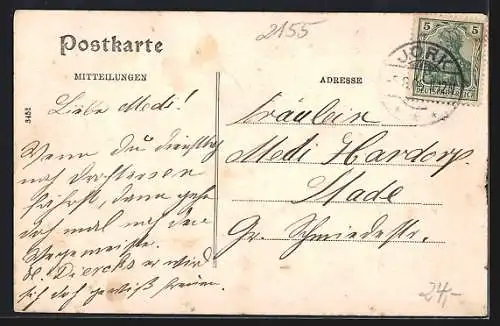 2155
Postkarte
MITTEILUNGEN
ADRESSE
5 5
DEUTSCHES REICH
JORK
3451
Liebe Medi!
Wenn Du Dienstag
nach
fährst, dann gehe
doch mal nach dem
Wegemeister.
H. Diercks er wird
sich doch gewiß freuen.
Fräulein
Medi Hardorp.
Stade
Gr. Schmiedestr.
24,-